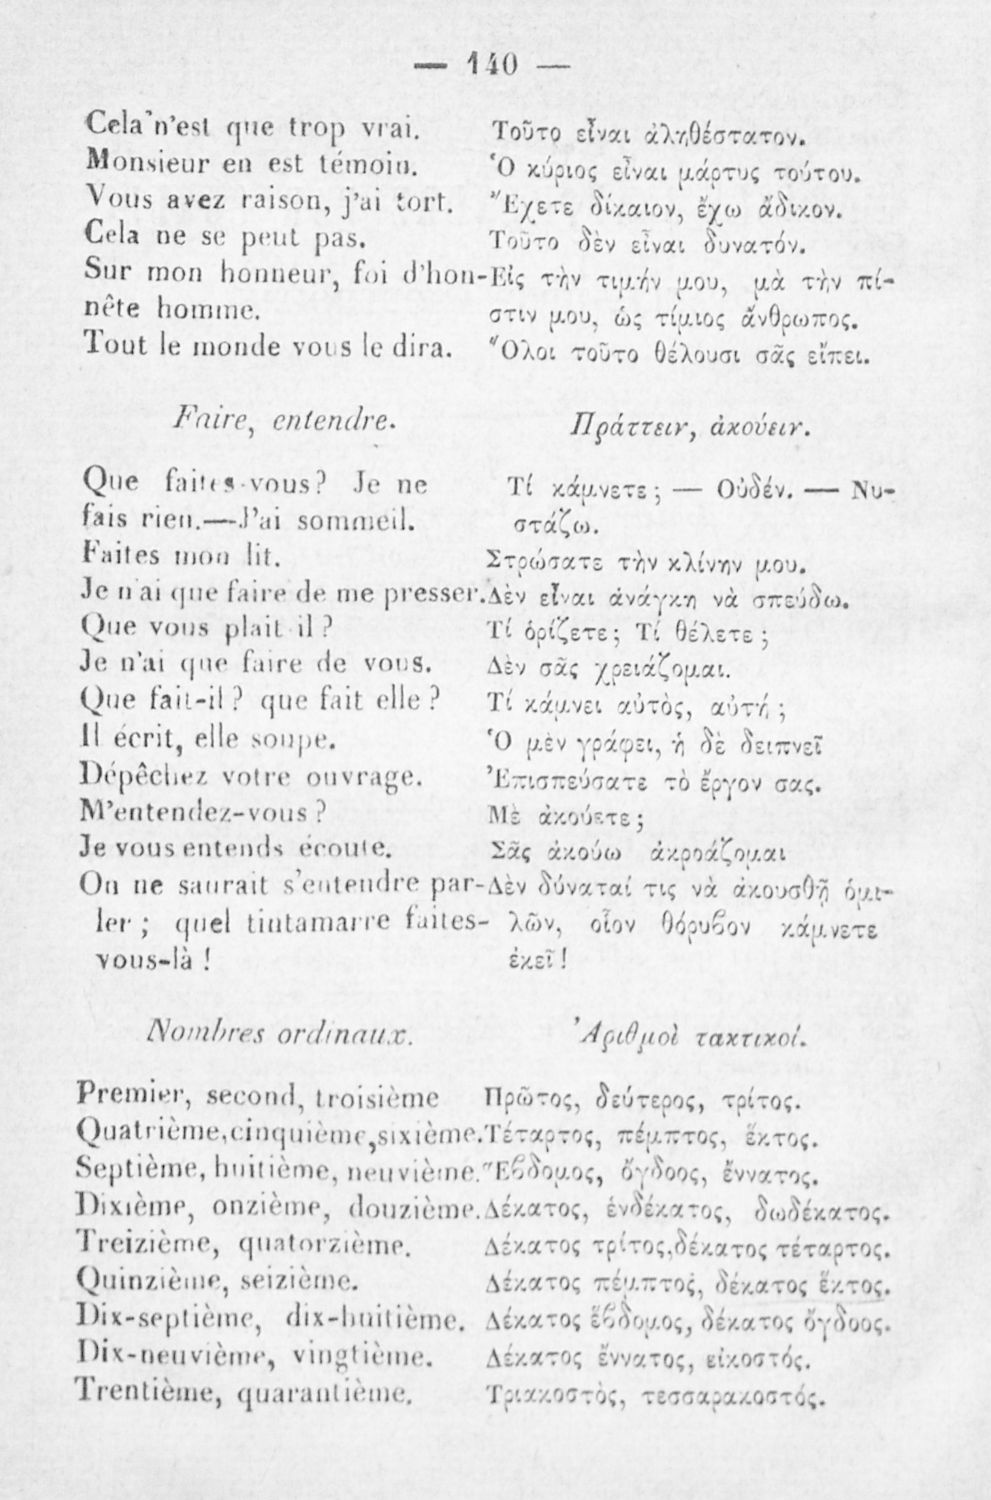 — 140 —
Cela n'est que trop vrai. Τοῦτο εἶναι ἀληθέστατον.
Monsieur en est témoin. Ὁ κύριος εἶναι μάρτυς τούτου.
Vous avez raison, j'ai tort. Ἔχετε δίκαιον, ἔχω ἄδικον.
Cela ne se peut pas. Τοῦτο δὲν εἶναι δυνατόν.
Sur mon honneur, foi d'hon- Εἰς τὴν τιμήν μου, μὰ τὴν πί-
nête homme. στιν μου, ὡς τίμιος ἄνθρωπος.
Tout le monde vous le dira. Ὅλοι τοῦτο θέλουσι σᾶς εἴπει.
Faire, entendre. Πράττειν, ἀκούειν.
Que faites-vous? Je ne Τί κάμνετε; — Οὐδέν. — Νυ-
fais rien.—J'ai sommeil. στάζω.
Faites mon lit. Στρώσατε τὴν κλίνην μου.
Je n'ai que faire de me presser. Δὲν εἶναι ἀνάγκη νὰ σπεύδω.
Que vous plait-il? Τί ὁρίζετε; Τί θέλετε;
Je n'ai que faire de vous. Δὲν σᾶς χρειάζομαι.
Que fait-il? que fait elle? Τί κάμνει αὐτὸς, αὐτή;
Il écrit, elle soupe. Ὁ μὲν γράφει, ἡ δὲ δειπνεῖ
Dépêchez votre ouvrage. Ἐπισπεύσατε τὸ ἔργον σας.
M'entendez-vous? Μὲ ἀκούετε;
Je vous entends écoute. Σᾶς ἀκούω ἀκροάζομαι
On ne saurait s'entendre par- Δὲν δύναταί τις νὰ ἀκουσθῇ ὁμι-
ler; quel tintamarre faites- λῶν, οἷον θόρυϐον κάμνετε
vous-là! ἐκεῖ!
Nombres ordinaux. Ἀριθμοὶ τακτικοί.
Premier, second, troisième Πρῶτος, δεύτερος, τρίτος.
Quatrième, cinquième, sixième. Τέταρτος, πέμπτος, ἕκτος.
Septième, huitième, neuvième. Ἕϐδομος, ὄγδοος, ἔννατος.
Dixième, onzième, douzième. Δέκατος, ἑνδέκατος, δωδέκατος.
Treizième, quatorzième. Δέκατος τρίτος, δέκατος τέταρτος.
Quinzième, seizième. Δέκατος πέμπτος, δέκατος ἕκτος.
Dix-septième, dix-huitième. Δέκατος ἕϐδομος, δέκατος ὄγδοος.
Dix-neuvième, vingtième. Δέκατος ἔννατος, εἰκοστός.
Trentième, quarantième. Τριακοστὸς, τεσσαρακοστός.